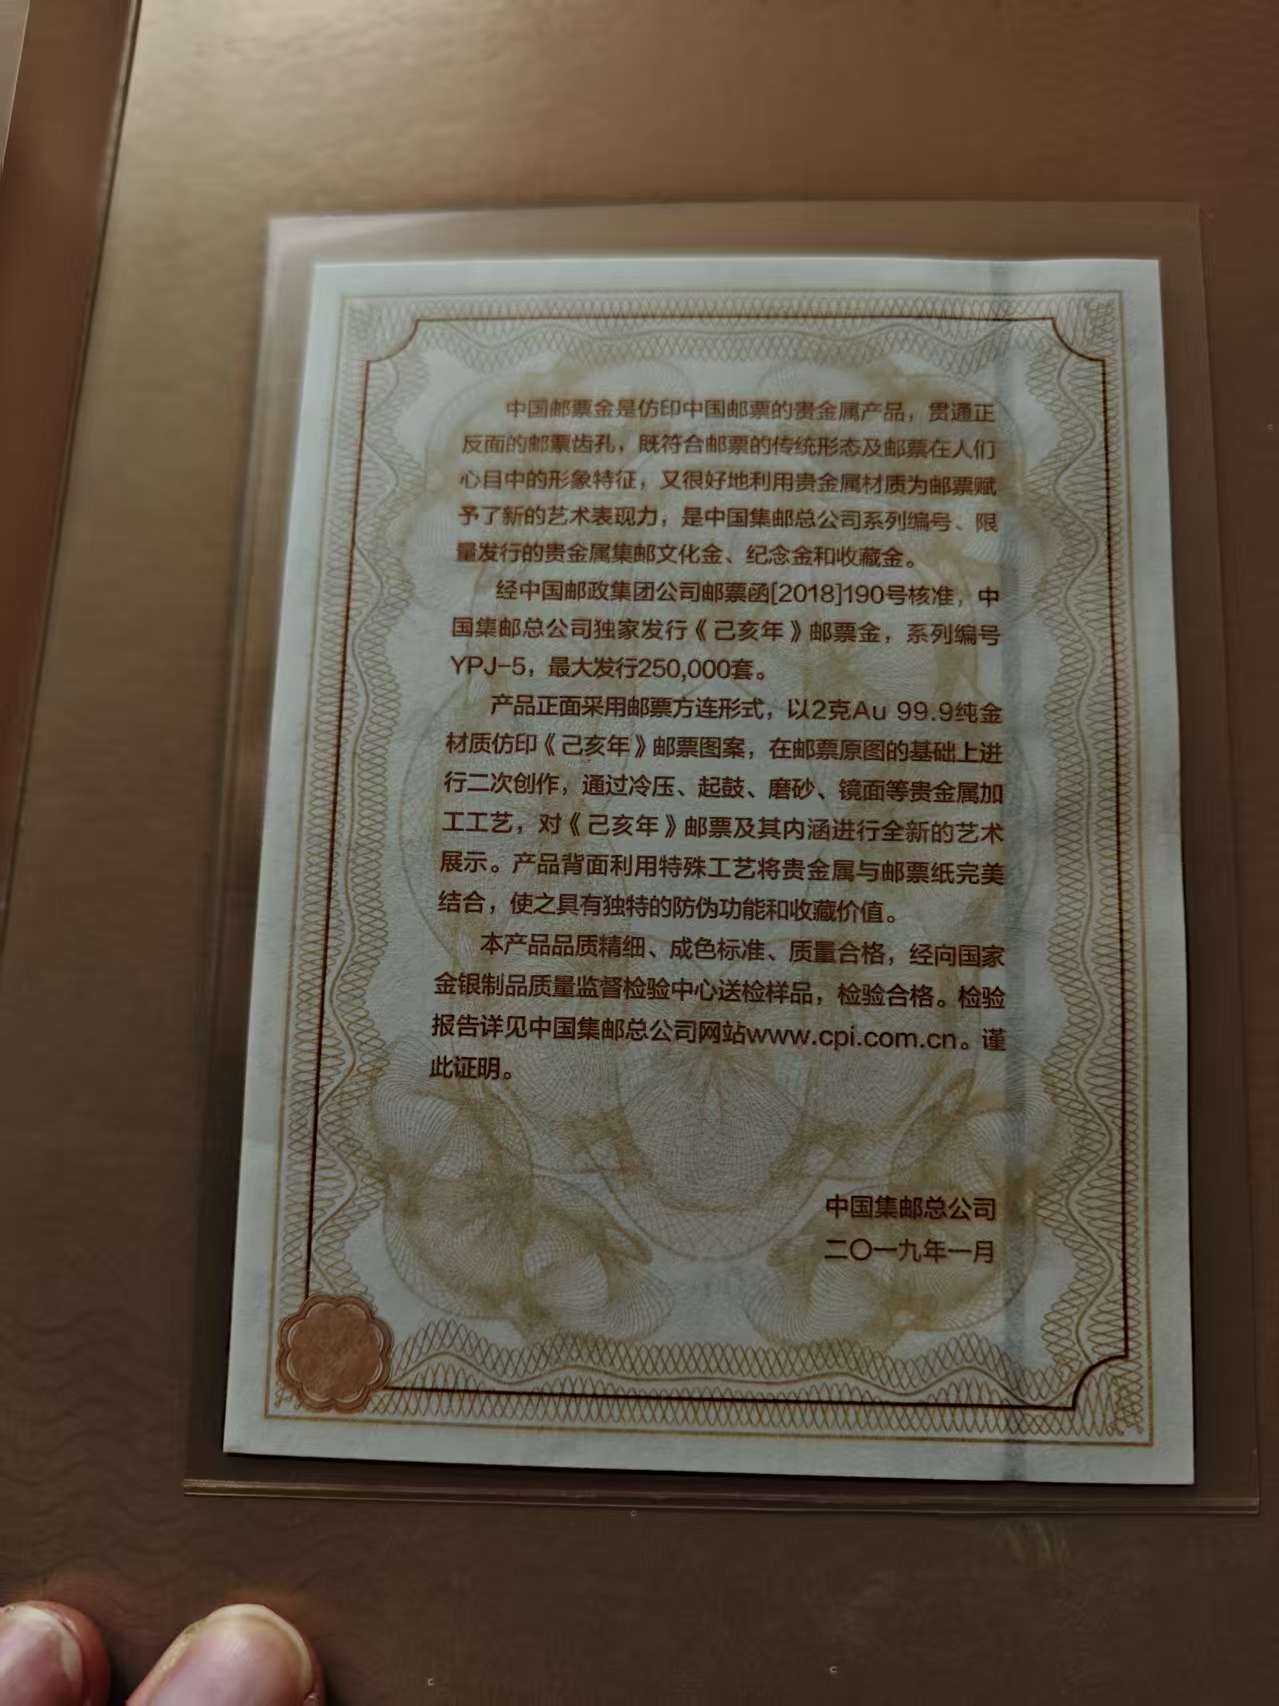 中国邮票金是仿印中国邮票的贵金属产品，贯通正
反面的邮票齿孔，既符合邮票的传统形态及邮票在人们
心目中的形象特征，又很好地利用贵金属材质为邮票赋
予了新的艺术表现力，是中国集邮总公司系列编号、限
量发行的贵金属集邮文化金、纪念金和收藏金。
经中国邮政集团公司邮票函[2018]190号核准，中
国集邮总公司独家发行《己亥年》邮票金，系列编号
YPJ-5，最大发行250,000套。
产品正面采用邮票方连形式，以2克Au 99.9纯金
材质仿印《己亥年》邮票图案，在邮票原图的基础上进
行二次创作，通过冷压、起鼓、磨砂、镜面等贵金属加
工工艺，对《己亥年》邮票及其内涵进行全新的艺术
展示。产品背面利用特殊工艺将贵金属与邮票纸完美
结合，使之具有独特的防伪功能和收藏价值。
本产品品质精细、成色标准、质量合格，经向国家
金银制品质量监督检验中心送检样品，检验合格。检验
报告详见中国集邮总公司网站www.cpi.com.cn。谨
此证明。
中国集邮总公司
二〇一九年一月